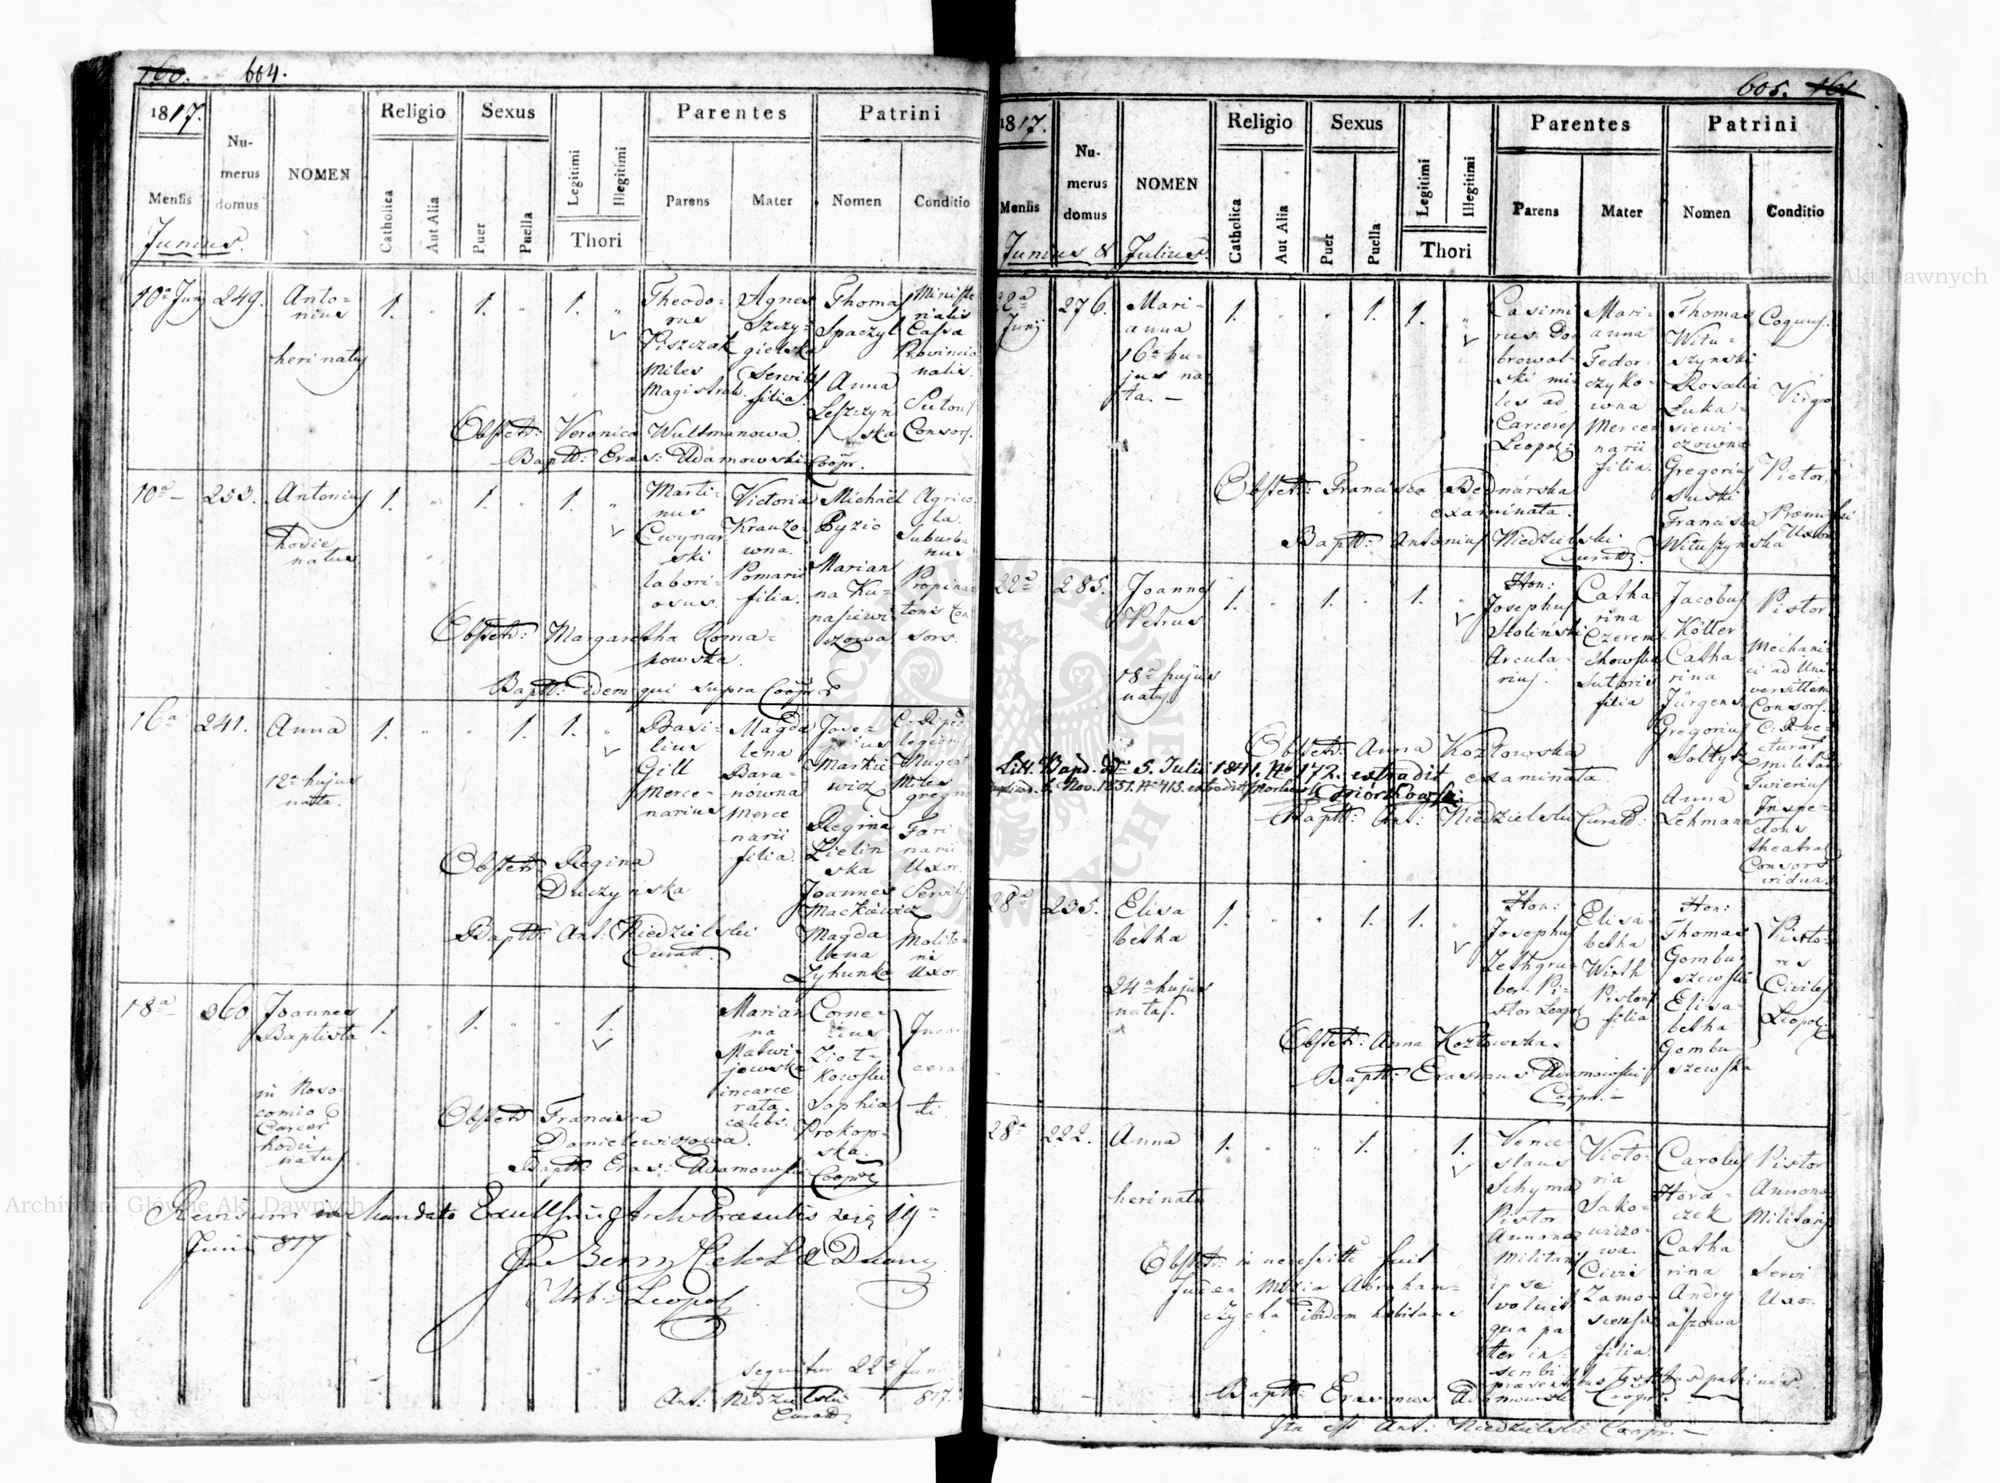 160. 604.
1817. Religio Sexus Parentes Patrini
Nu-
merus
domus
NOMEN
Mensis
Catholica
Aut Alia
Puer
Puella
Legitimi
Illegitimi
Thori
Parens Mater Nomen Conditio
Junius.
10a Junij 249. Anto-
nius
heri natus
1. " 1. " 1. "
Theodo-
rus
Piszczak
miles
Magistrat.
Agnes
Szczy-
gielska
Servili
filia
Thomas
Spaczyl
Anna
Leszczyń
ska
Ministe-
rialis
Cassa
Provincio
nalis.
Sutoris
Consors.
Obstetr: Veronica Wultmanowa
Baptt: Eras: Adamowski Coopr.
10a 253. Antonius
hodie
natus
1. " 1. " 1. "
Marti-
nus
Cwynar
ski
labori-
osus.
Victoria
Krauzo-
wna.
Pomarii
filia.
Michael
Pyzio
Marian
na Ku-
nasiewi
czowa
Agrico
la.
Suburba
nus
Propina
tonis Con
sors.
Obstetr: Margaretha Roma-
kowska.
Baptt: idem qui supra Coopr
16a 241. Anna
12a hujus
nata.
1. " " 1. 1. "
Basi-
lius
Gill
Merce-
narius
Magda
lena
Bara-
nowna
Merce
narii
filia.
Jose-
phus
Markie
wicz
Regina
Zielin
ska
Joannes
Mackiewicz
Magda
lena
Zyhunka
Nugent
Miles
Fari
narii
Uxor.
Servilis
Molito-
ris
Uxor.
Obstetr: Regina
Duczyńska
Baptt: Ant: Niedzielski
Curatt.
18a 360 Joannes
Baptista
in Noso-
comio
Carcer
hodie
natus
1. " 1. " " 1.
Marian
na
Malwi-
jowska
incarce
rata.
caelibs.
Corne-
lius
Ziot-
kowski
Sophia
Prokop-
ska.
Incar
cera
ti
Obstetr: Francisca
Danielewiczowa.
Baptt: Eras: Adamowski Coopr
Revisum ex Mandato
19a
Junii 817
Urb: Leopol.
sequitur 22a Juni
Ant: Niedzielski 817.
Curatt
605. 161
1817. Religio Sexus Parentes Patrini
Nu-
merus
domus
NOMEN
Mensis
Catholica
Aut Alia
Puer
Puella
Legitimi
Illegitimi
Thori
Parens Mater Nomen Conditio
Junius & Julius.
22a
Junij
276. Mari-
anna
16a hu-
jus na
ta. —
1. " " 1. 1. "
Casimi
rus Do
browol-
ski mi
les ad
Carceres
Leopol:
Mari-
anna
Fedor-
czyko-
wna
Merce
narii
filia.
Thomas
Witu-
szynski
Rosalia
Luka-
siewi-
czowna
Gregorius
Suski
Francisca
Wituszynska
Coquus.
Virgo
Pictor,
Praemissi
Uxor.
Obstetr: Francisca Bednarska
examinata.
Baptt: Antonius Niedzielski
Curatt.
22a 285. Joannes
Petrus
18a hujus
natus
1. " 1. " 1. "
Hon:
Josephus
Stoliński
Arcula-
rius.
Catha
rina
Czerem
chowska
Sutoris
filia
Jacobus
Kötter
Catha-
rina
Jürgens
Gregorius
Soltyk
Anna
Lehmann
Pistor
Mechani
ci ad Uni
versittem
Consors.
Inspe-
ctoris
theatral
Consors
vidua.
Obstetr: Anna Kozlowska
examinata.
Litt. Bapt. dto 5. Julii 1841. No 172. extradit
Baptt: Ant: Niedzielski Curatt:
28a 235. Elisa
betha
24a hujus
nata.
1. " " 1. 1. "
Hon:
Josephus
Zethgru-
ber Pi-
stor Leopol
Elisa-
betha
Wirth
Pistoris
filia
Hon:
Thomas
Gombu-
szewski
Elisa-
betha
Gombu-
szewska
Pisto-
res
Civiles
Leopol:
Obstetr: Anna Kozlowska.
Baptt: Erasmus Adamowski
Coopr. —
28a 222. Anna
heri nata
1. " " 1. " 1.
Vence
slaus
Schyma
Pistor
Annonae
militaris
ipse
voluit
qua pa
ter in-
scribi
Victo-
ria
Sako-
wiczo-
wa.
Civis
Zamo-
scensis
filia.
Carolus
Hora-
czek
Catha
rina
Andry
aszowa
Pistor
Annonae
Militaris
Servi
Uxor.
Obstetr: in necessitte fuit
Judea Abrahan-
czycha ibidem habitans
praesentibus testibus patrinis.
Baptt: Erasmus Adamowski Coopr.
Ita est Ant: Niedzielski Coopr. —
Archiwum Główne Akt Dawnych
Archiwum Główne Akt Dawnych
ARCHIWUM GŁÓWNE AKT DAWNYCH